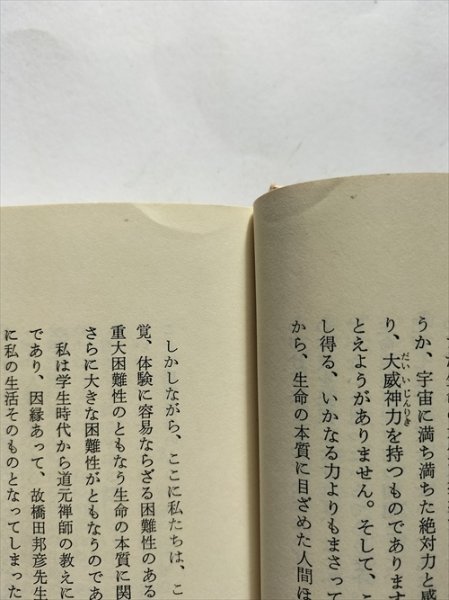 うか、宇宙に満ち満ちた絶対力と感
り、大威神力を持つものであります
だいいじんりき
とえようがありません。そして、こ
し得る、いかなる力よりもまさって
から、生命の本質に目ざめた人間ほ
しかしながら、ここに私たちは、こ
覚、体験に容易ならざる困難性のある
重大困難性のともなう生命の本質に関
さらに大きな困難性がともなうのであ
私は学生時代から道元禅師の教えに
であり、因縁あって、故橋田邦彦先生
に私の生活そのものとなってしまった